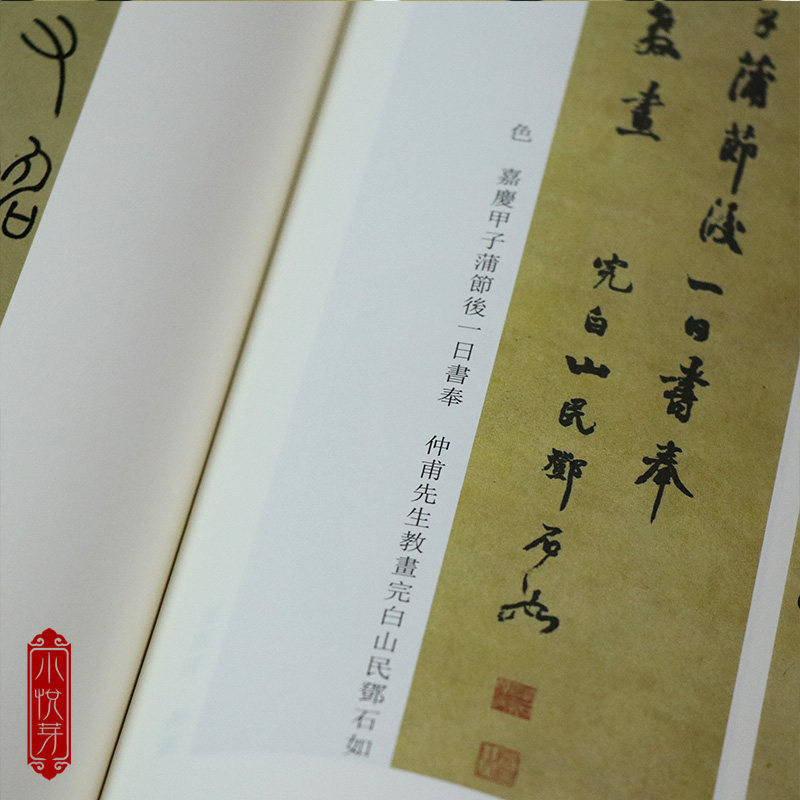 子蒲節後一日書奉
教畫 完白山民鄧石如
色 嘉慶甲子蒲節後一日書奉 仲甫先生教畫完白山民鄧石如
小悦芽